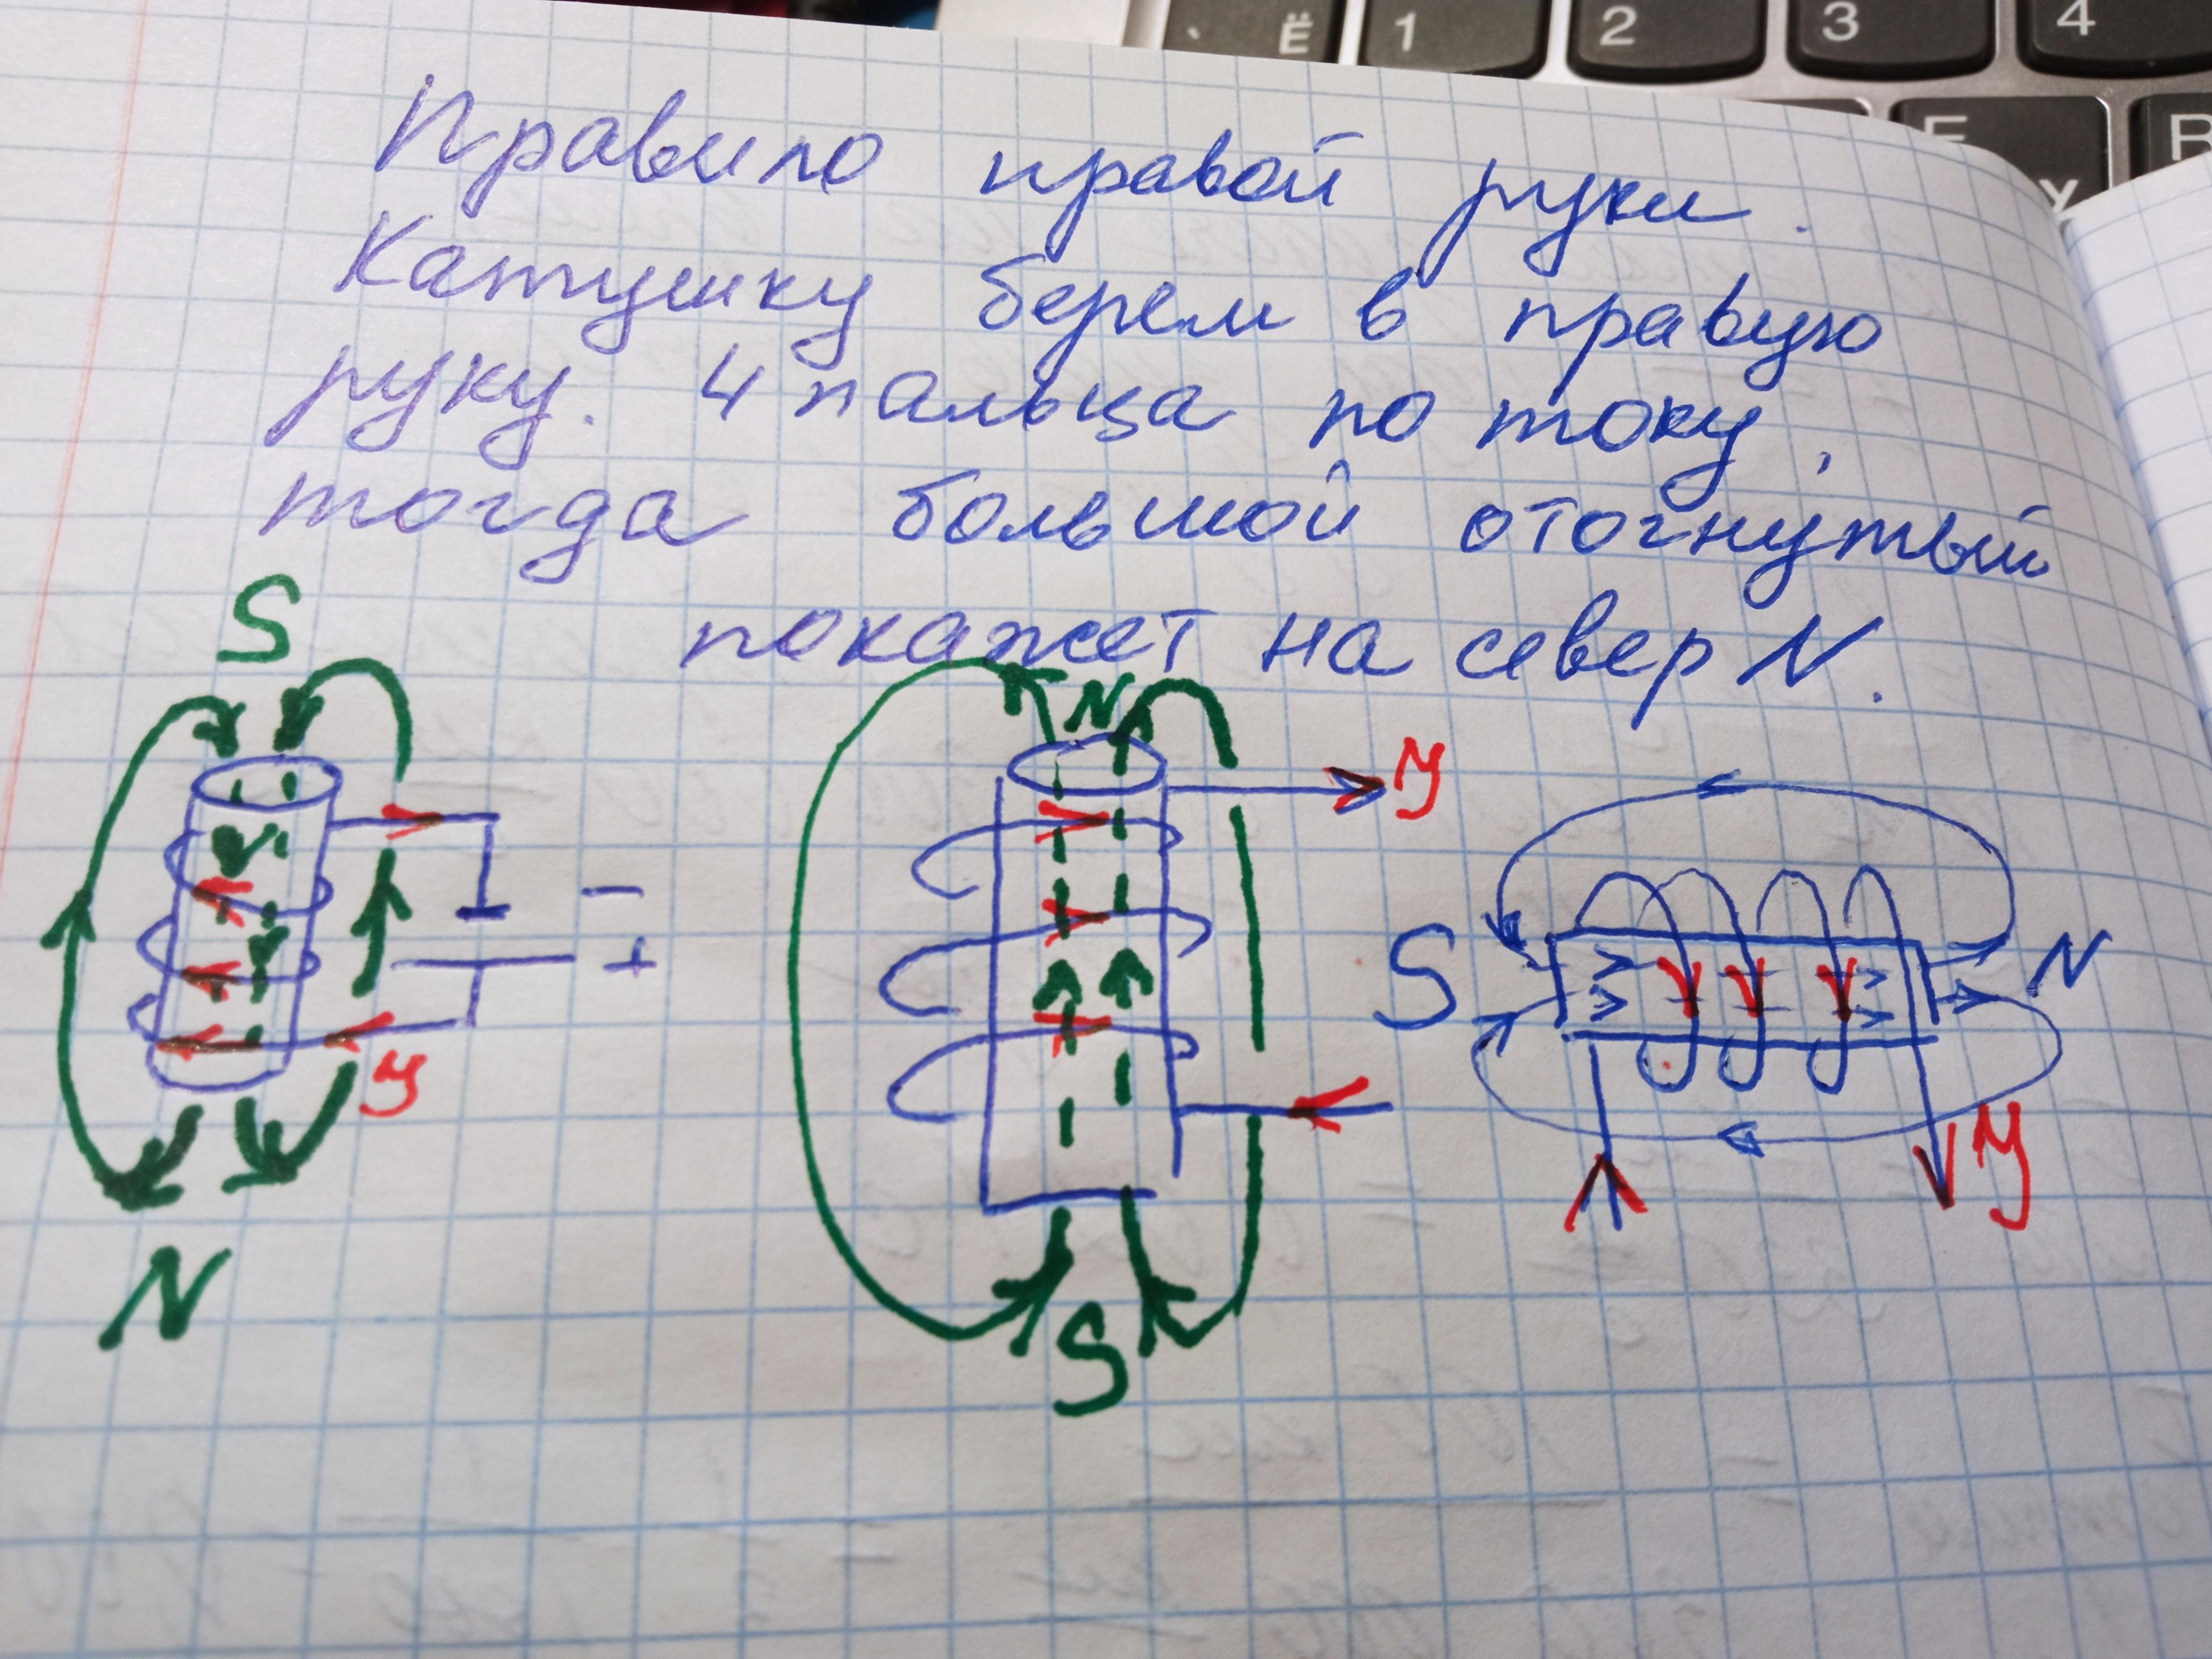 ` Ё 1 2 3 4
R
Правило правой руки.
Катушку берем в правую
руку. 4 пальца по току,
тогда большой отогнутый
покажет на север N.
S
N
У
У
−
+
S
N
У
У
N
S